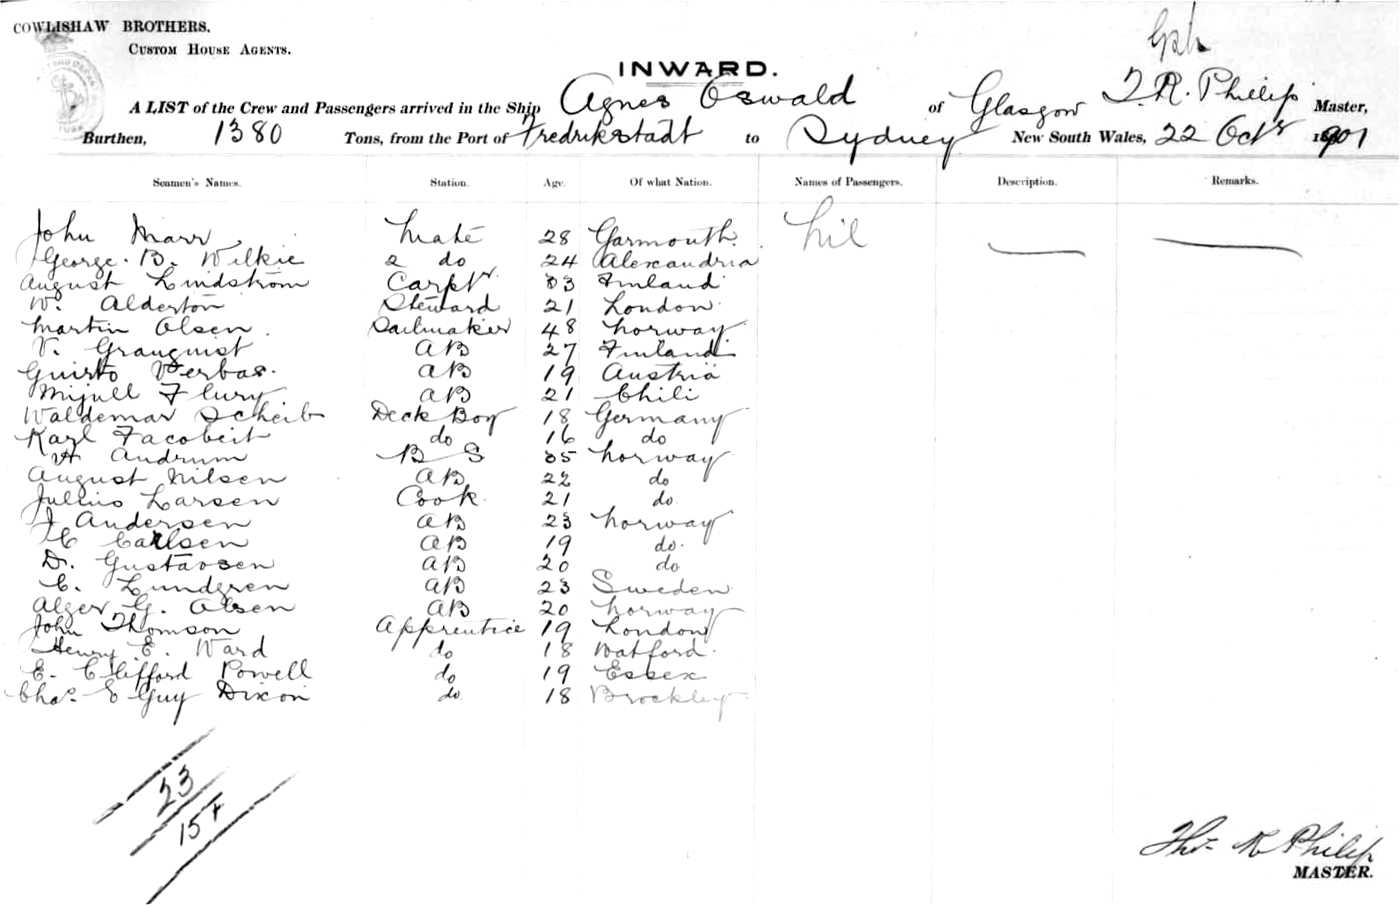 COWLISHAW BROTHERS.
CUSTOM HOUSE AGENTS.
INWARD.
A LIST of the Crew and Passengers arrived in the Ship Agnes Oswald of Glasgow T. R. Phillip Master,
Burthen, 1380 Tons, from the Port of Fredrikstadt to Sydney New South Wales, 22 Octr 1901
Seamen's Names. Station. Age. Of what Nation. Names of Passengers. Description. Remarks.
John Marr Mate 28 Garmouth. Nil
George. B. Wilkie 2 do 24 Alexandria
August Lindstrom Carptr 33 Finland
W. Alderton Steward 21 London
Martin Olsen. Sailmaker 48 Norway
V. Granquist AB 27 Finland
Guisto Verbas. AB 19 Austria
Mijull Flury AB 21 Chili
Waldemar Scheib Deck Boy 18 Germany
Karl Jacobeit do 16 do
A Andrum B S 35 Norway
August Nilsen AB 22 do
Jullius Larsen Cook 21 do
J Andersen AB 23 Norway
C Carlsen AB 19 do.
D. Gustavsen AB 20 do
C. Lundgren AB 23 Sweden
Alger G. Olsen AB 20 Norway
John Thomson Apprentice 19 London
Henry E. Ward do 18 Watford.
E. Clifford Powell do 19 Essex
Chas. E Guy Dixon do 18 Brockley
23
15+
Thos R Philip
MASTER.